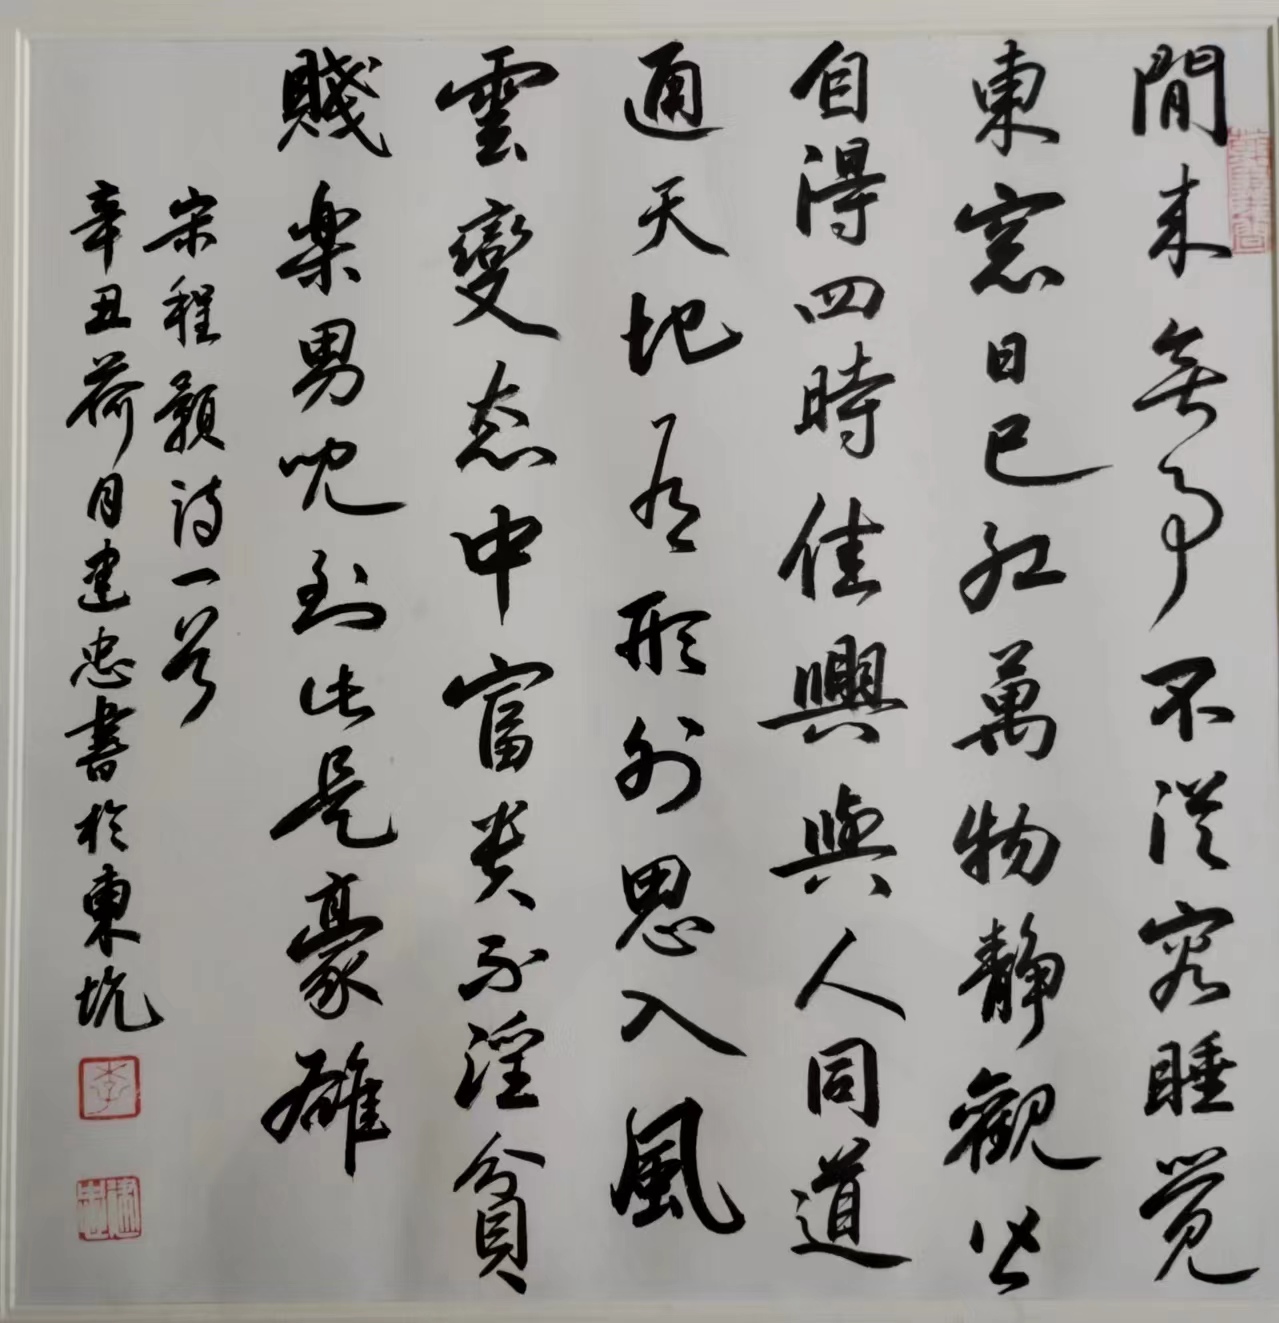 閒来無事不從容睡觉
東窓日已红萬物静觀皆
自得四時佳興與人同道
通天地有形外思入風
雲變态中富贵不淫貧
賤楽男児到此是豪雄
宋程颢詩一首
辛丑荷月建忠書於東坑
李